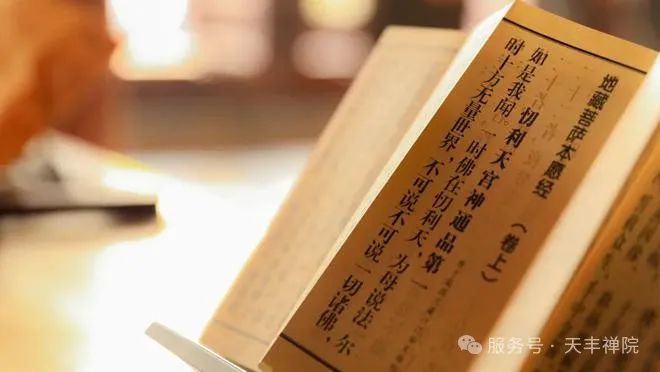 地藏菩萨本愿经（卷上）
忉利天宫神通品第一
如是我闻。一时佛在忉利天，为母说法。尔
时十方无量世界，不可说不可说一切诸佛，
服务号 · 天丰禅院